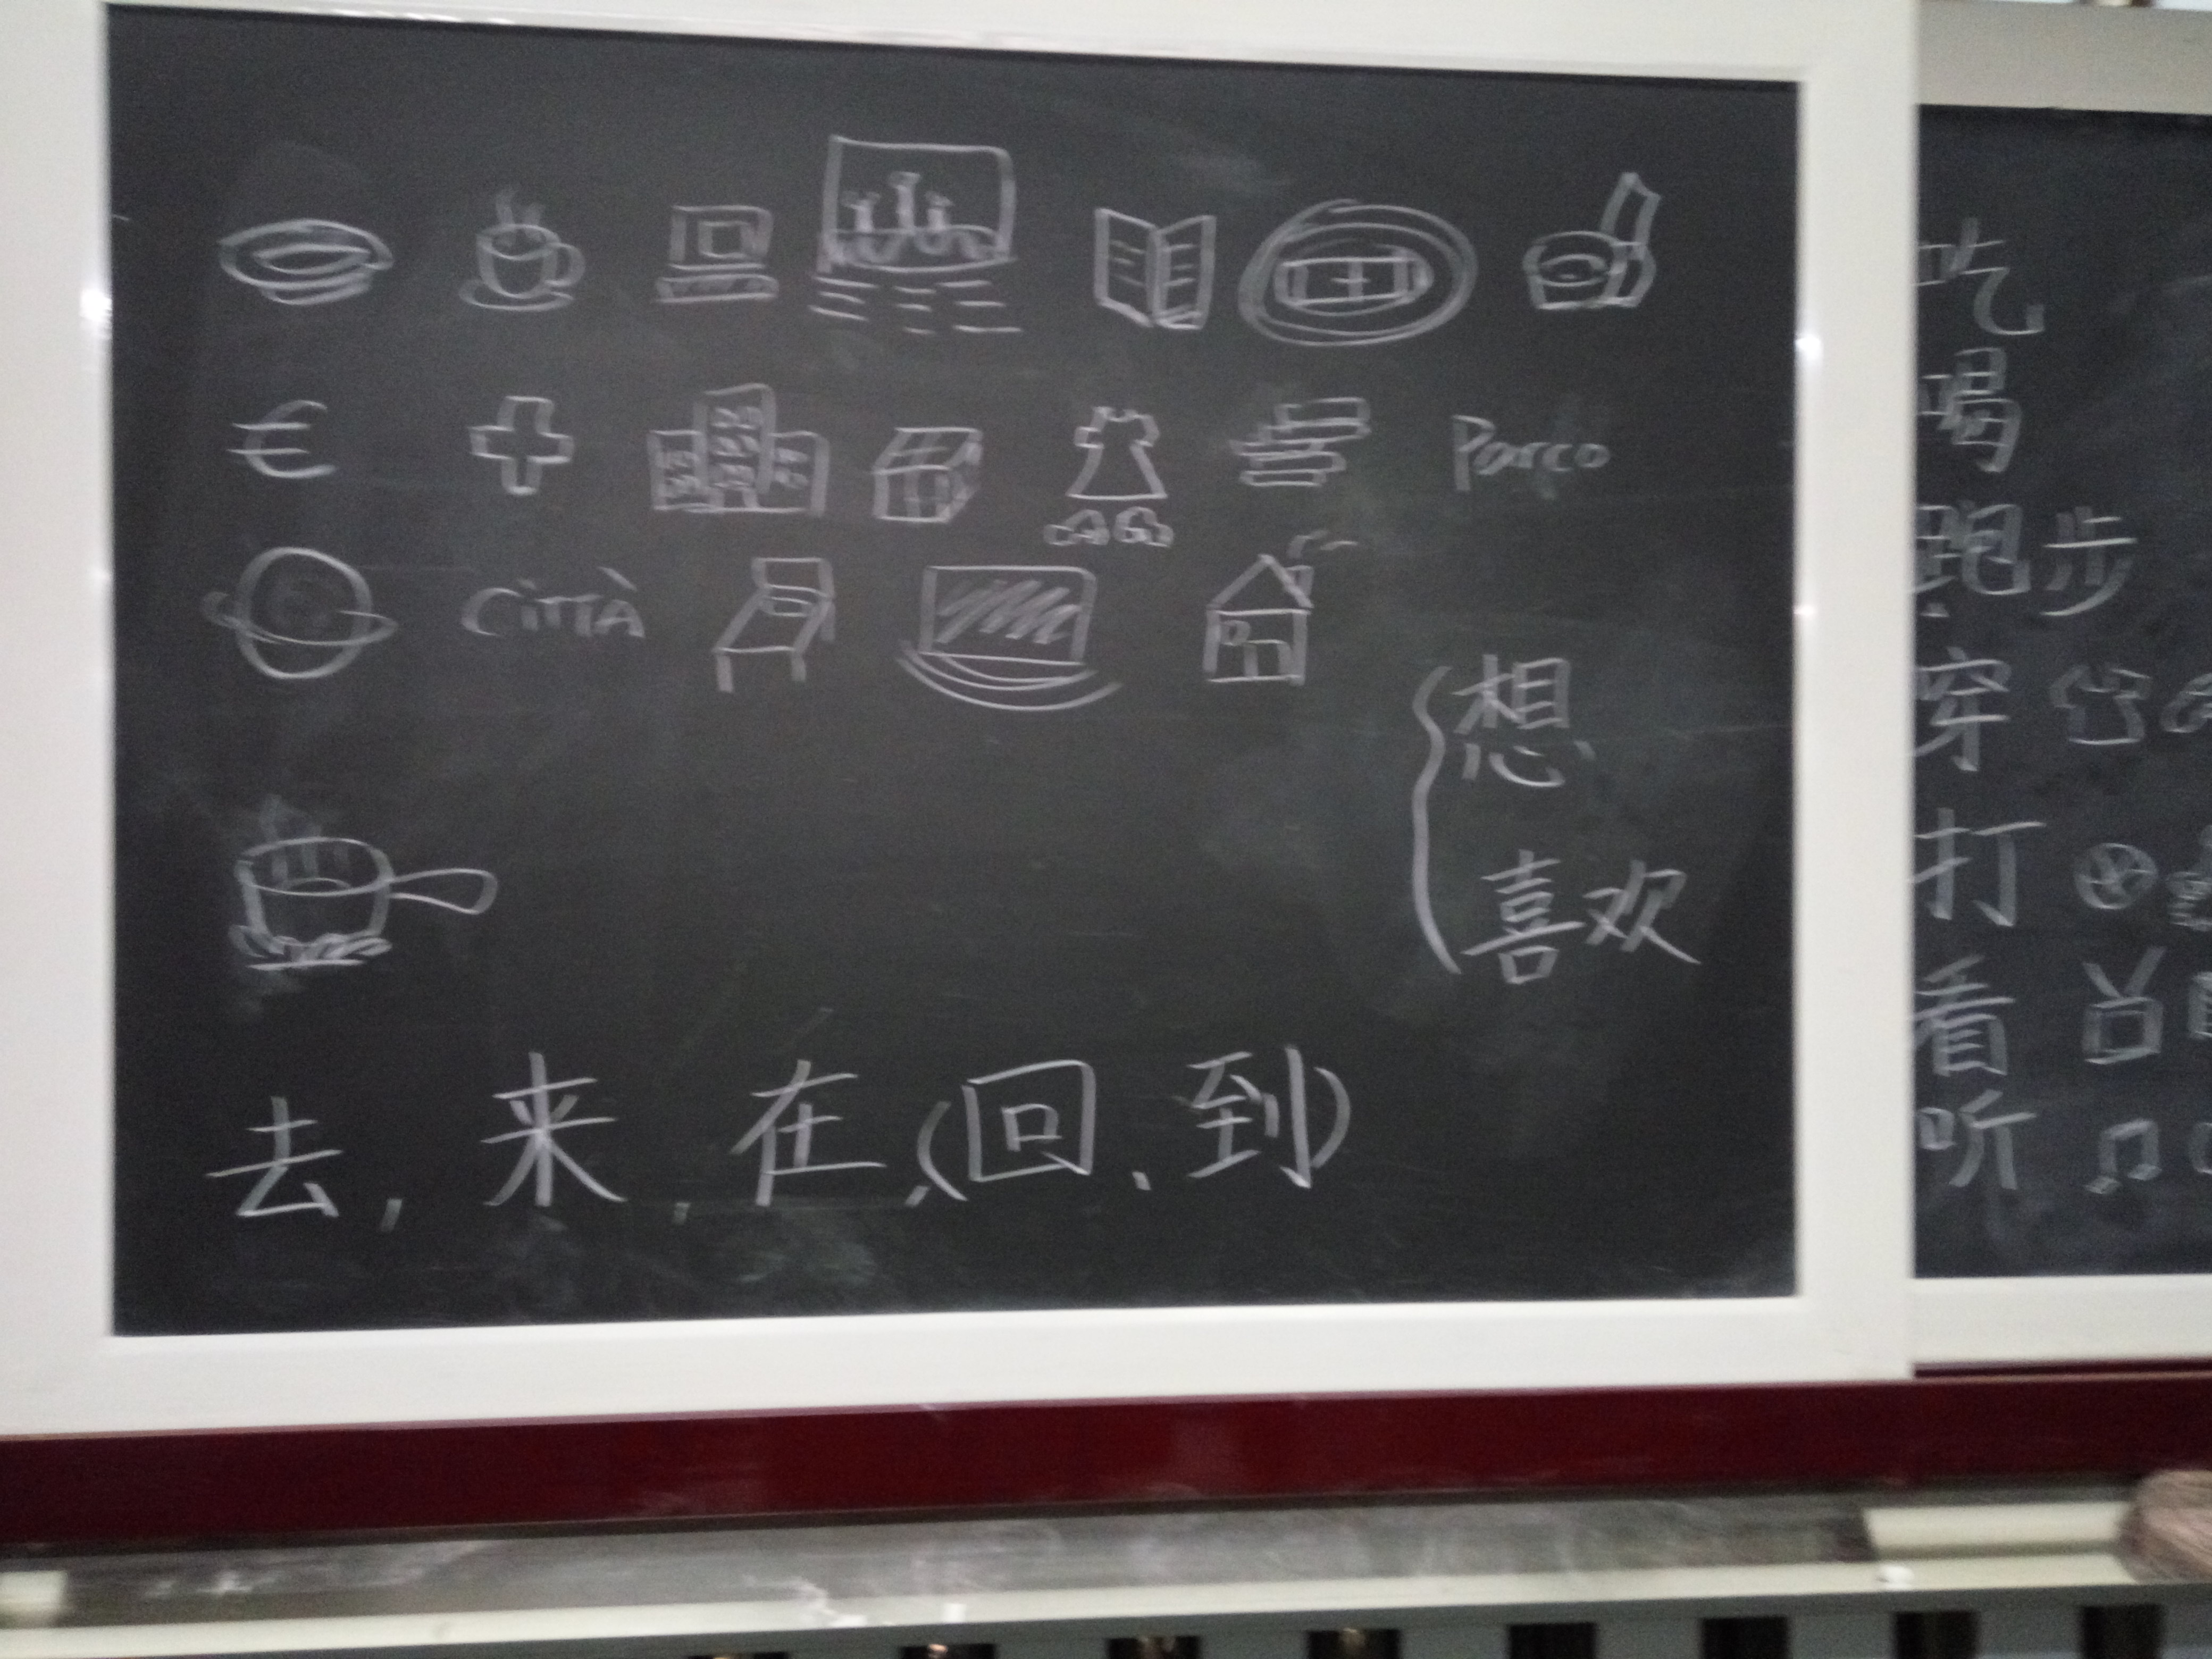 € Parco
Città
想
喜欢
去, 来, 在, (回, 到)
吃
喝
跑步
穿
打
看
听